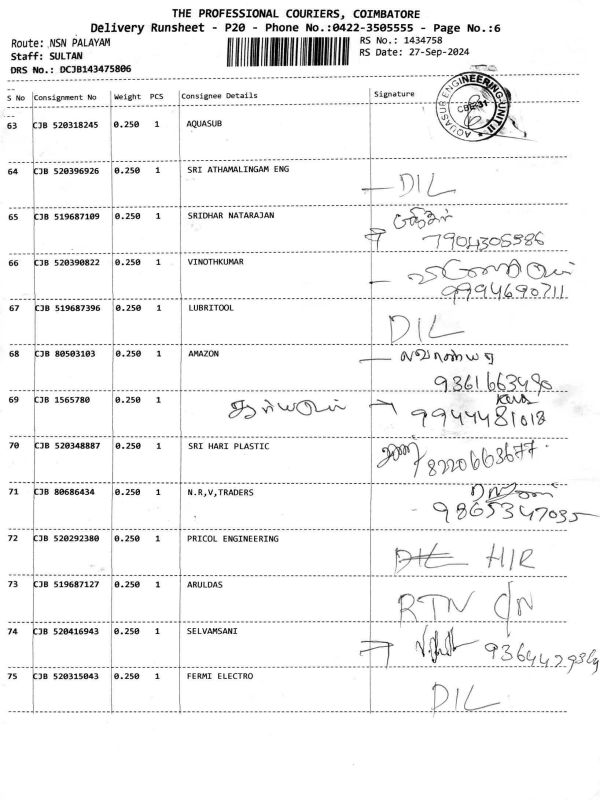 THE PROFESSIONAL COURIERS, COIMBATORE
Delivery Runsheet - P20 - Phone No.:0422-3505555 - Page No.:6
Route: NSN PALAYAM RS No.: 1434758
Staff: SULTAN RS Date: 27-Sep-2024
DRS No.: DCJB143475806
S No Consignment No Weight PCS Consignee Details Signature
AQUASUB ENGINEERING-UNIT II CBE-31
63 CJB 520318245 0.250 1 AQUASUB
64 CJB 520396926 0.250 1 SRI ATHAMALINGAM ENG
DIL
65 CJB 519687109 0.250 1 SRIDHAR NATARAJAN
7904306586
66 CJB 520390822 0.250 1 VINOTHKUMAR
9994690711
67 CJB 519687396 0.250 1 LUBRITOOL
DIL
68 CJB 80503103 0.250 1 AMAZON
9361663490
69 CJB 1565780 0.250 1
9944481018
70 CJB 520348887 0.250 1 SRI HARI PLASTIC
8220663677
71 CJB 80686434 0.250 1 N.R,V,TRADERS
9865347035
72 CJB 520292380 0.250 1 PRICOL ENGINEERING
DIL H/R
73 CJB 519687127 0.250 1 ARULDAS
RTN C/N
74 CJB 520416943 0.250 1 SELVAMSANI
75 CJB 520315043 0.250 1 FERMI ELECTRO
DIL